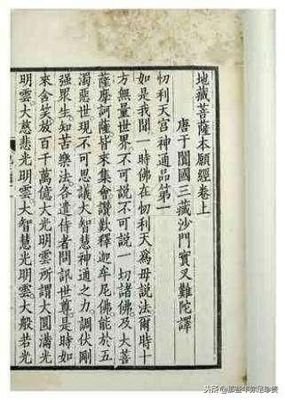 地藏菩薩本願經卷上
唐于闐國三藏沙門實叉難陀譯
忉利天宮神通品第一
如是我聞一時佛在忉利天爲母說法爾時十
方無量世界不可說不可說一切諸佛及大菩
薩摩訶薩皆來集會讚歎釋迦牟尼佛能於五
濁惡世現不可思議大智慧神通之力調伏剛
强衆生知苦樂法各遣侍者問訊世尊是時如
來含笑放百千萬億大光明雲所謂大圓滿光
明雲大慈悲光明雲大智慧光明雲大般若光
头条 @那些年弥足珍贵